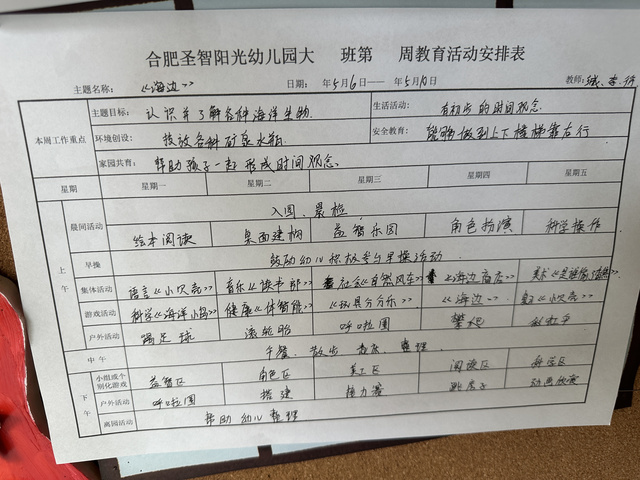 合肥圣智阳光幼儿园大 班第 周教育活动安排表
主题名称: 《海边》 日期: 年5月6日—— 年5月10日 教师:
本周工作重点 主题目标: 认识并了解各种海洋生物. 生活活动: 有初步的时间观念.
环境创设: 投放各种矿泉水瓶. 安全教育: 能够做到上下楼梯靠右行
家园共育: 帮助孩子一起形成时间观念.
星期 星期一 星期二 星期三 星期四 星期五
上午 晨间活动 入园、晨检
绘本阅读 桌面建构 益智乐园 角色扮演 科学操作
早操 鼓励幼儿积极参与早操活动.
集体活动 语言《小贝壳》 音乐《 》 社会《自然风车》 《海边商店》 美术
游戏活动 科学《海洋小岛》 健康《体智能》 《玩具分分乐》 《海边》 《小贝壳》
户外活动 踢足球 滚轮胎 呼啦圈 攀爬
中午 午餐、散步 整理.
下午 小组或个别化游戏 益智区 角色区 美工区 阅读区 科学区
户外活动 呼啦圈 搭建 接力赛 跳房子
离园活动 帮助幼儿整理